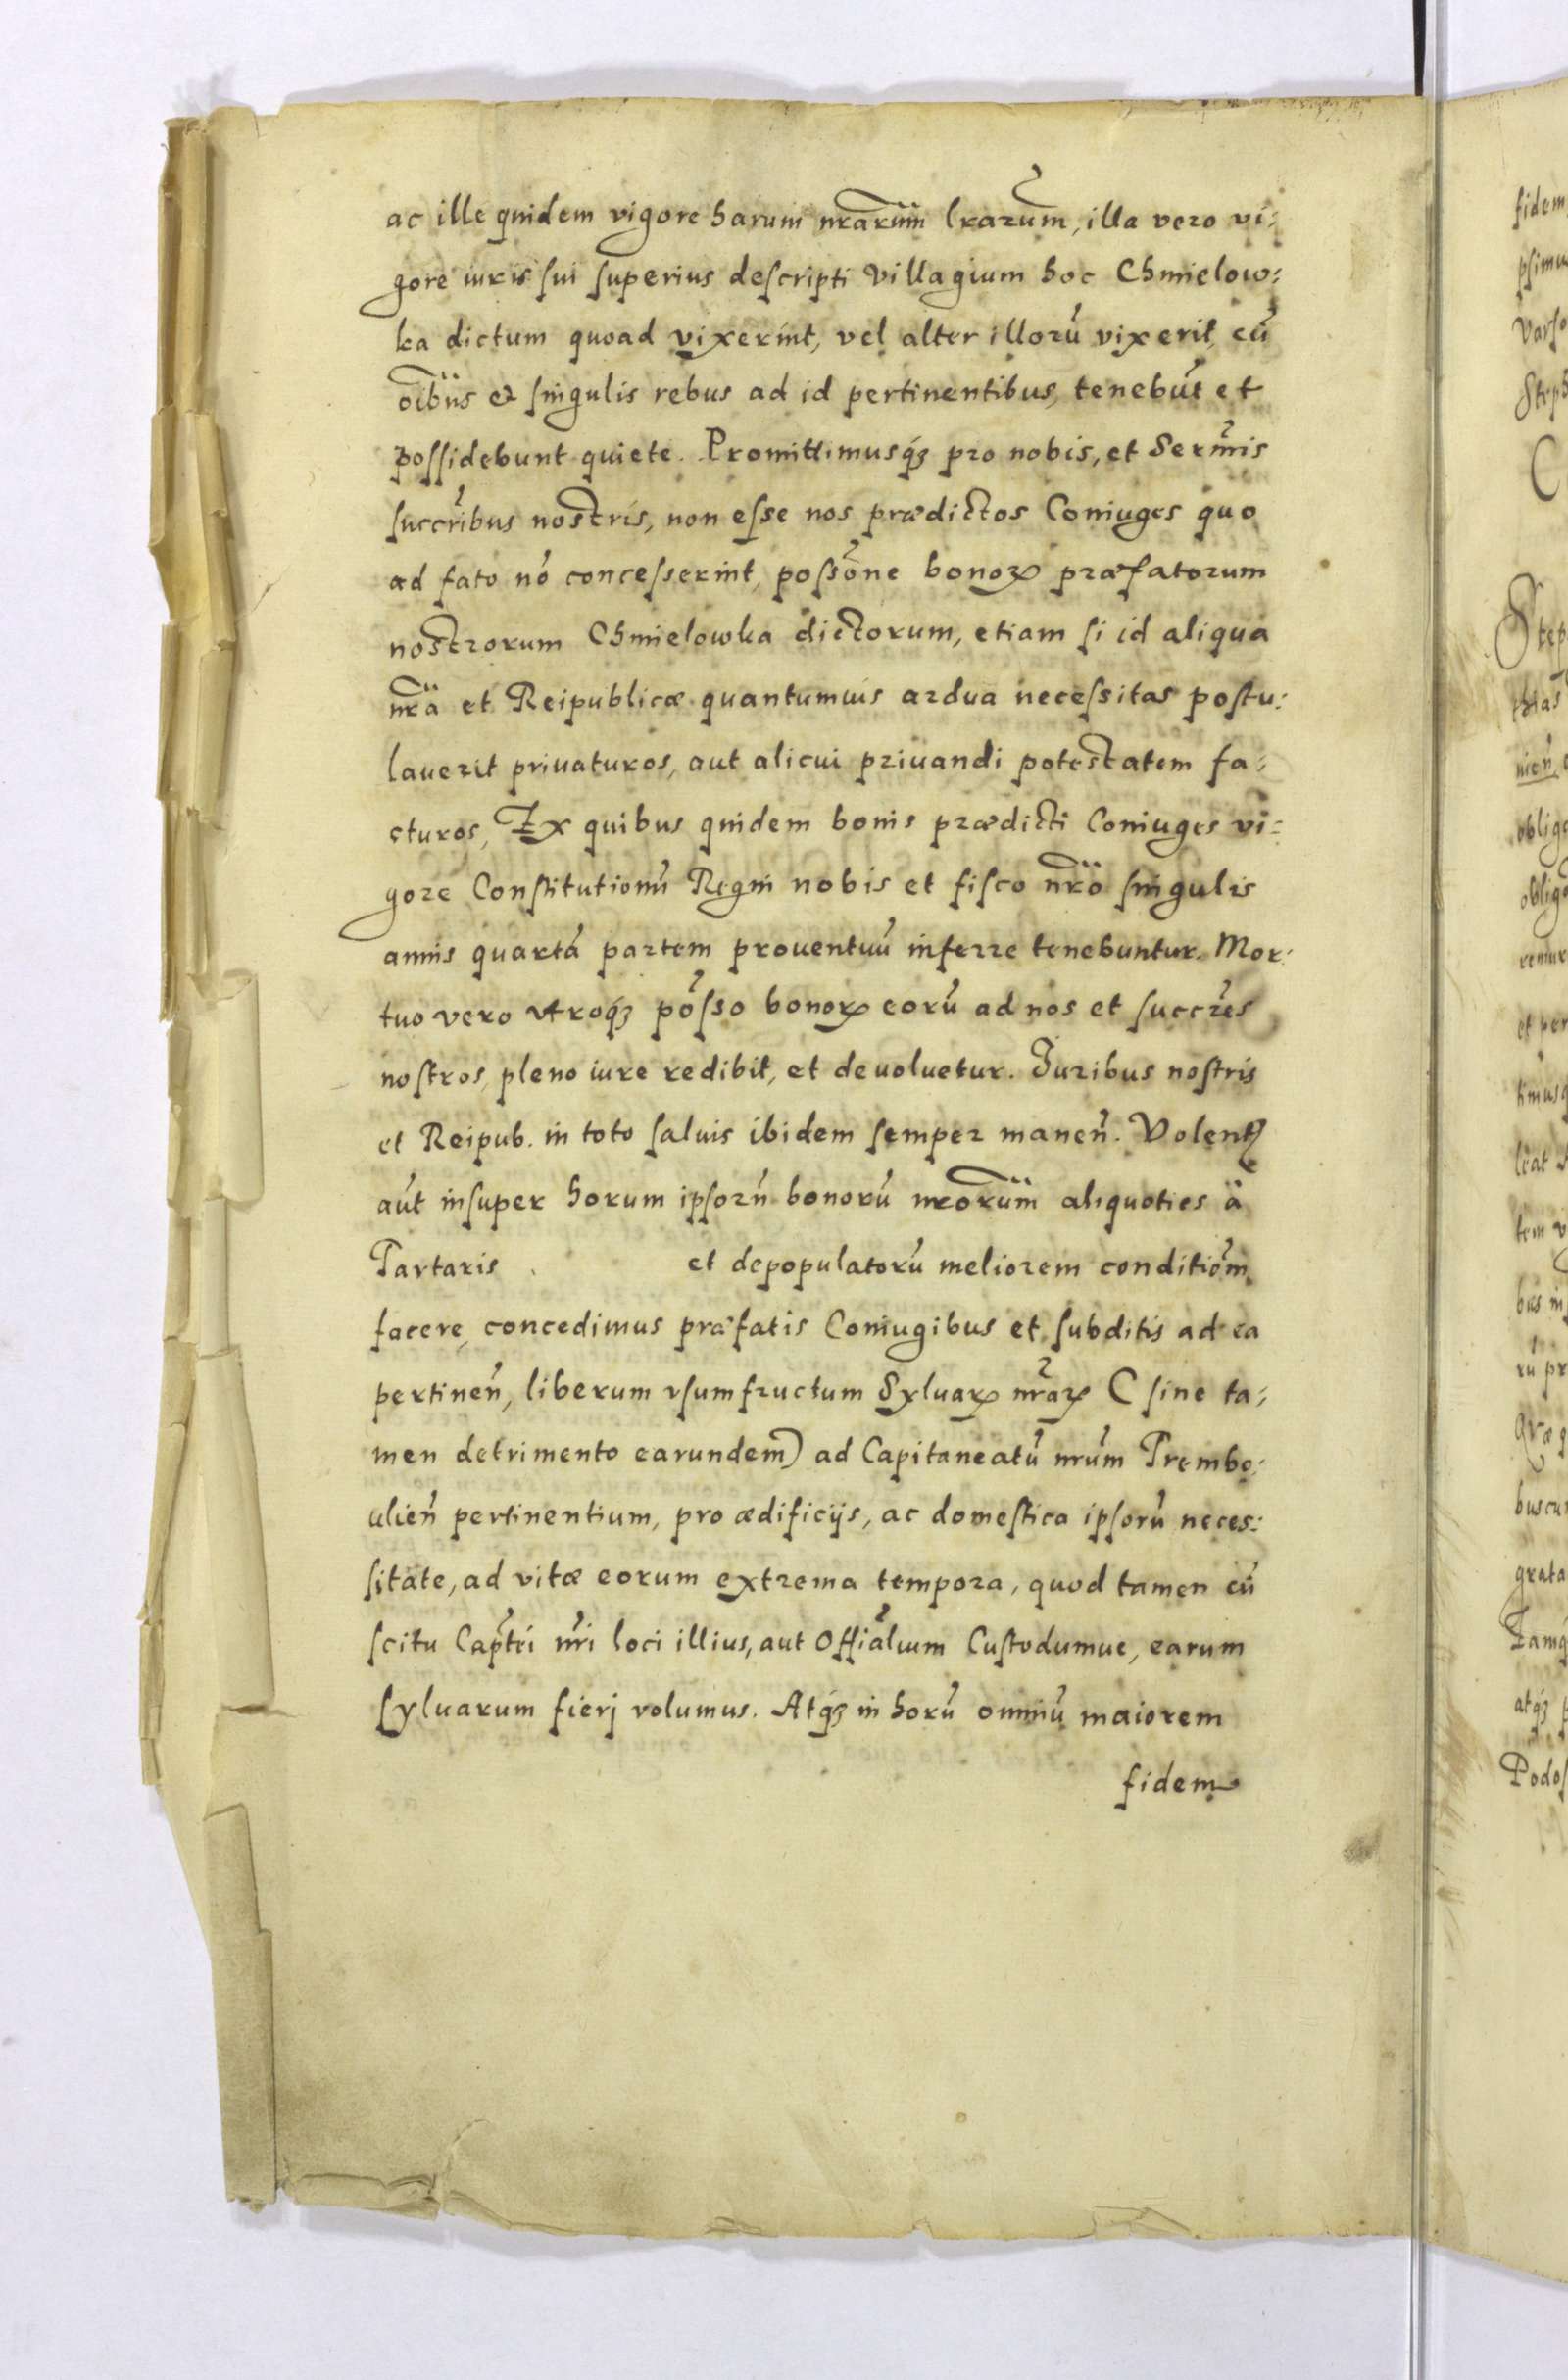 ac ille quidem vigore harum nrarum lrarum, illa vero vi:
gore iuris sui superius descripti Villagium hoc Chmielow:
ka dictum quoad vixerint, vel alter illorũ vixerit, cũ
oibus & singulis rebus ad id pertinentibus, tenebũt et
possidebunt quiete. Promittimusq́ꝫ pro nobis, et Sermis
succribus nostris, non esse nos prædictos Coniuges quo
ad fato nõ concesserint, possõne bonoꝝ præfatorum
nostrorum Chmielowka dictorum, etiam si id aliqua
nra et Reipublicæ quantumuis ardua necessitas postu:
lauerit priuaturos, aut alicui priuandi potestatem fa:
cturos, Ex quibus quidem bonis prædicti Coniuges vi:
gore Constitutionũ Regni nobis et fisco nro singulis
annis quartã partem prouentuũ inferre tenebuntur. Mor:
tuo vero vtroq́ꝫ põsso bonoꝝ eorũ ad nos et succres
nostros, pleno iure redibit, et deuoluetur. Iuribus nostris
et Reipub. in toto saluis ibidem semper maneñ. Volentꝭ
aũt insuper horum ipsorũ bonorũ nrorum aliquoties à
Tartaris et depopulatorũ meliorem conditiõm
facere, concedimus præfatis Coniugibus et subditis ad ea
pertineñ, liberum vsumfructum Syluaꝝ nraꝝ (sine ta:
men detrimento earundem) ad Capitaneatũ nrũm Trembo:
ulieñ pertinentium, pro ædificijs, ac domestica ipsorũ neces:
sitate, ad vitæ eorum extrema tempora, quod tamen cũ
scitu Captẽi nri loci illius, aut Offiãlium Custodumue, earum
syluarum fierj volumus. Atq́ꝫ in horũ omniũ maiorem
fidem